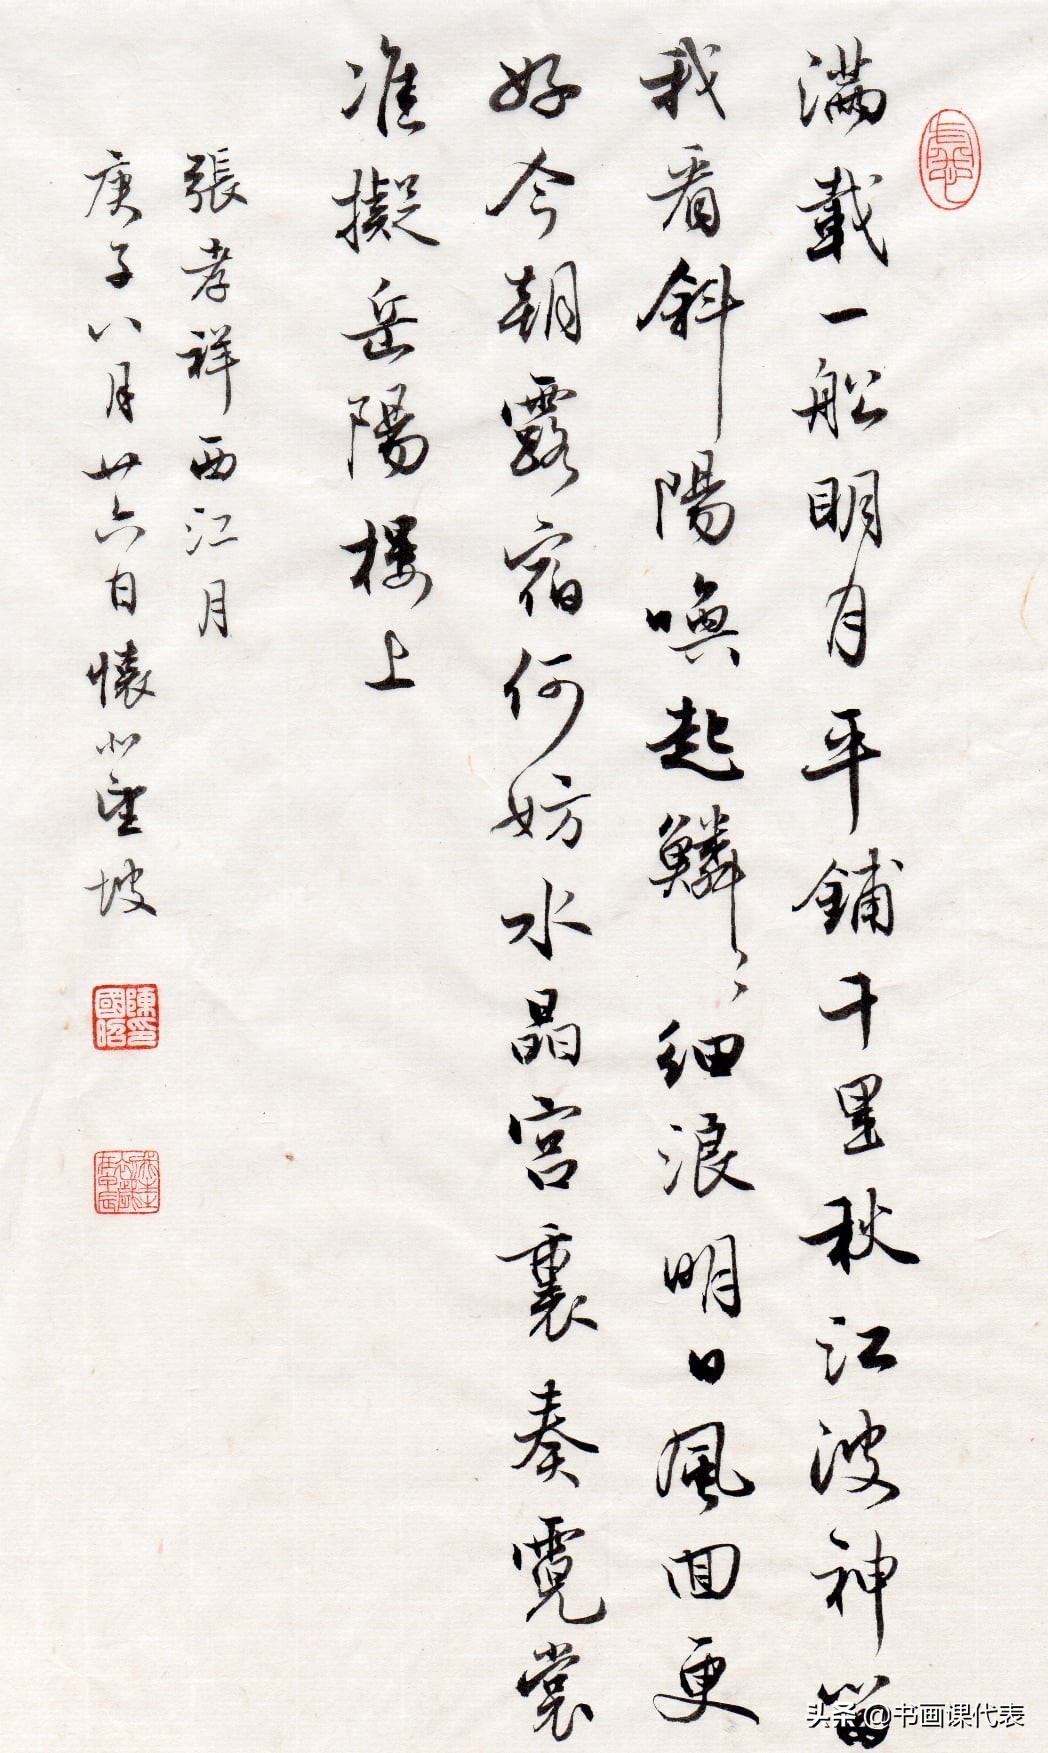 满載一船明月平鋪千里秋江波神留
我看斜陽喚起鱗〻細浪明日風囬更
好今朝露宿何妨水晶宮裏奏霓裳
准擬岳陽樓上
張孝祥西江月
庚子八月廿六日懷望坡
陳印國昭
头条 @书画课代表